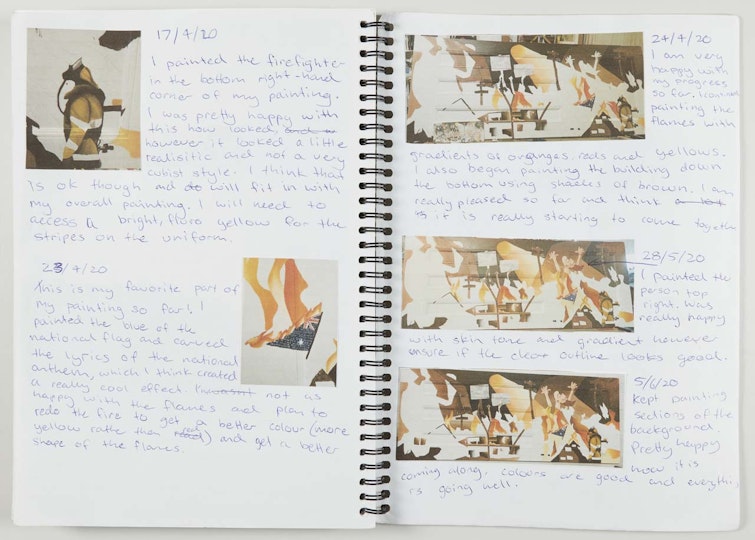 17/4/20
I painted the firefighter
in the bottom right-hand
corner of my painting.
I was pretty happy with
this how looked,
however it looked a little
realisitic and not a very
cubist style. I think than
is ok though and will fit in with
my overall painting. I will need to
access a bright, fluro yellow for the
stripes on the uniform.
23/4/20
This is my favorite part of
my painting so far! I
painted the blue of the
national flag and carved
the lyrics of the national
anthem, which I think created
a really cool effect. not as
happy with the flames and plan to
redo the fire to get a better colour (more
yellow rathe then red) and get a better
shape of the flames.
24/4/20
I am very
happy with
my progress
so far.
painting the
flames with
gradients of oranges, reds and yellows.
I also began painting the building down
the bottom using shades of brown. I am
really pleased so far and think
it is really starting to come together
28/5/20
I painted the
person top
right. Was
really happy
with skin tone and gradient however
unsure if the clear outline looks good.
5/6/20
Kept painting
sections of the
background.
Pretty happy
how it is
coming along, colours are good and everythi
is going well.